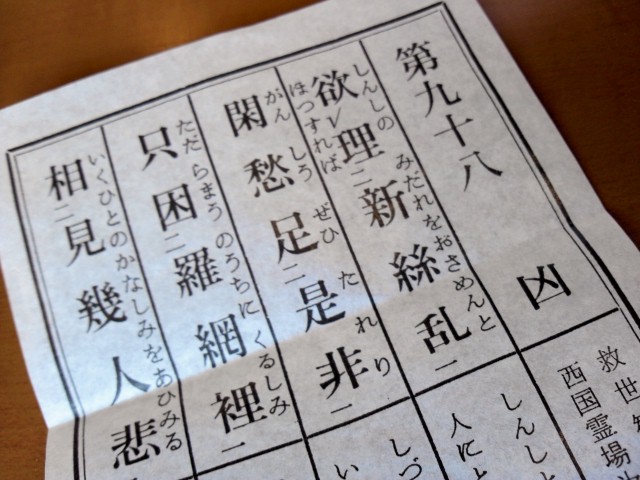 第九十八 凶
欲レ理二新絲乱一
しんしの みだれをおさめんと
ほつすれば
閑愁足二是非一
がん しう ぜひ たれり
只困二羅網裡一
ただ らまう のうちに くるしみ
相二見幾人悲
いくひとのかなしみをあひみる
救世
西国霊場
しんしと
人に
しづ
い